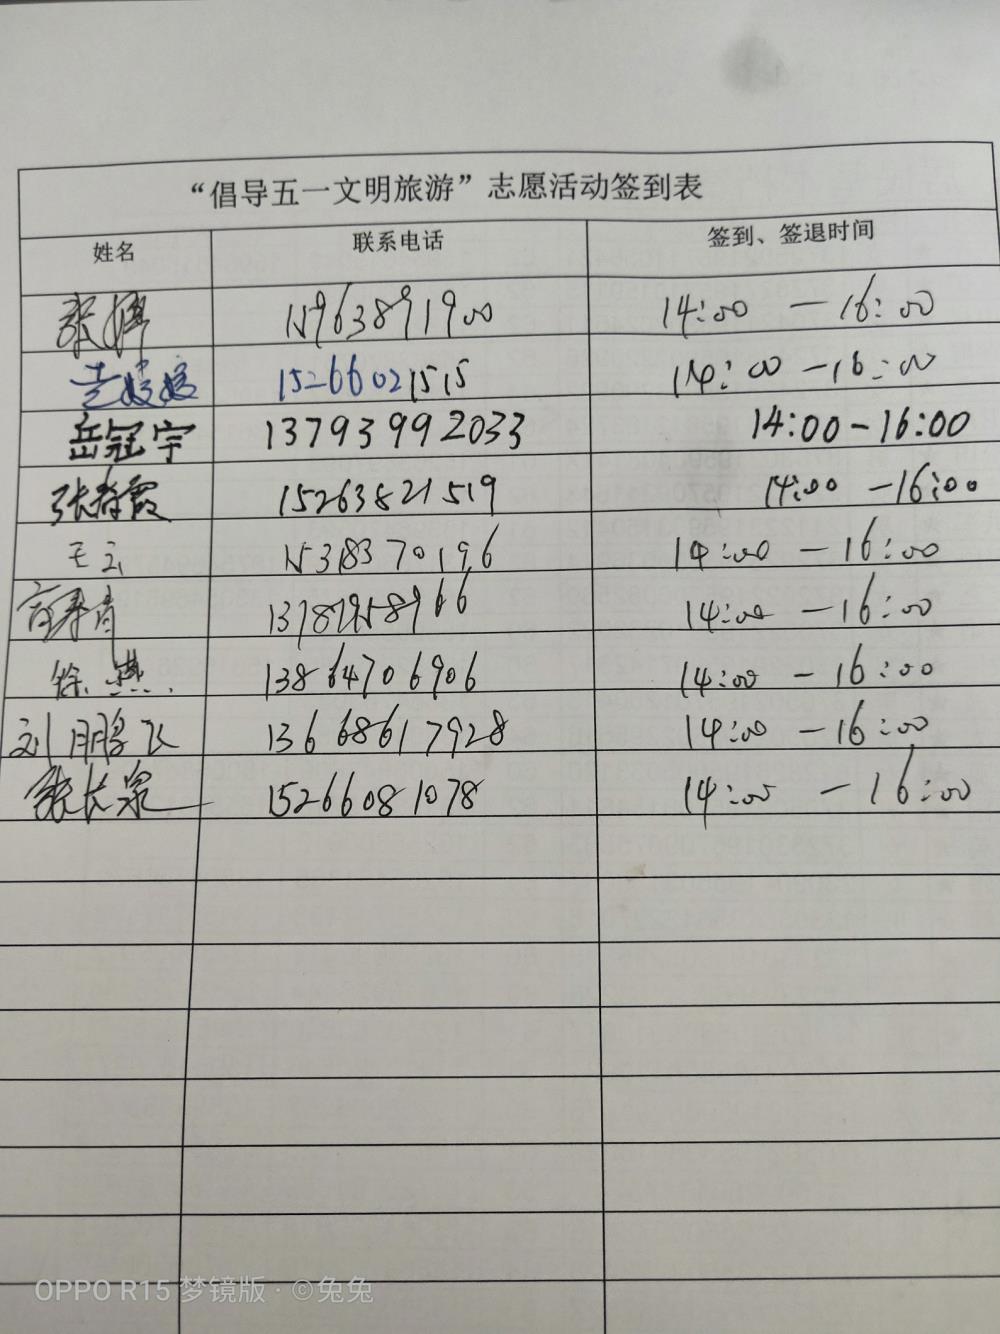 “倡导五一文明旅游”志愿活动签到表
姓名 联系电话 签到、签退时间
张 15963891900 14:00 — 16:00
15266021515 14:00 — 16:00
岳冠宇 13793992033 14:00 - 16:00
张春霞 15263821519 14:00 — 16:00
王云 15318370196 14:00 — 16:00
14:00 — 16:00
徐燕 13864706906 14:00 — 16:00
刘鹏飞 13668617928 14:00 — 16:00
张长泉 15266081078 14:00 — 16:00
OPPO R15 梦镜版 · ©兔兔